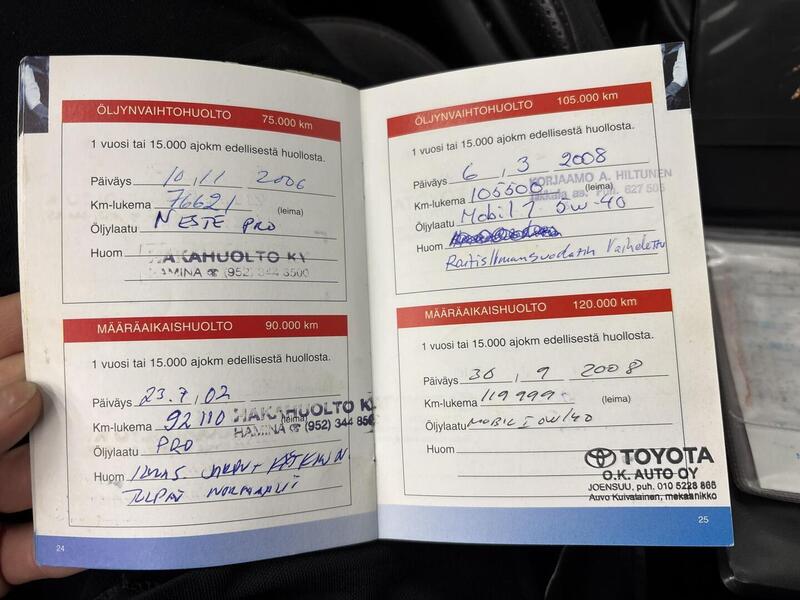 ÖLJYNVAIHTOHUOLTO 75.000 km
1 vuosi tai 15.000 ajokm edellisestä huollosta.
Päiväys 10, 11 2006
Km-lukema 76621 (leima)
Öljylaatu NESTE PRO
Huom
HAKAHUOLTO KY
HAMINA ☎ (952) 344 8500
MÄÄRÄAIKAISHUOLTO 90.000 km
1 vuosi tai 15.000 ajokm edellisestä huollosta.
Päiväys 23.7,02
Km-lukema 92110 (leima)
HAKAHUOLTO KY
HAMINA ☎ (952) 344 850
Öljylaatu PRO
Huom
TULPAT
24
ÖLJYNVAIHTOHUOLTO 105.000 km
1 vuosi tai 15.000 ajokm edellisestä huollosta.
Päiväys 6, 3 2008
KORJAAMO A. HILTUNEN
Km-lukema 105500 (leima)
Puh. 627 505
Öljylaatu Mobil 1 5W-40
Huom
Raitisilmansuodatin Vaihdettu
MÄÄRÄAIKAISHUOLTO 120.000 km
1 vuosi tai 15.000 ajokm edellisestä huollosta.
Päiväys 30, 9 2008
Km-lukema 119999 (leima)
Öljylaatu MOBIL 1 0W/40
Huom
TOYOTA
O.K. AUTO OY
JOENSUU, puh. 010 5228 866
Auvo Kuivalainen, mekaanikko
25